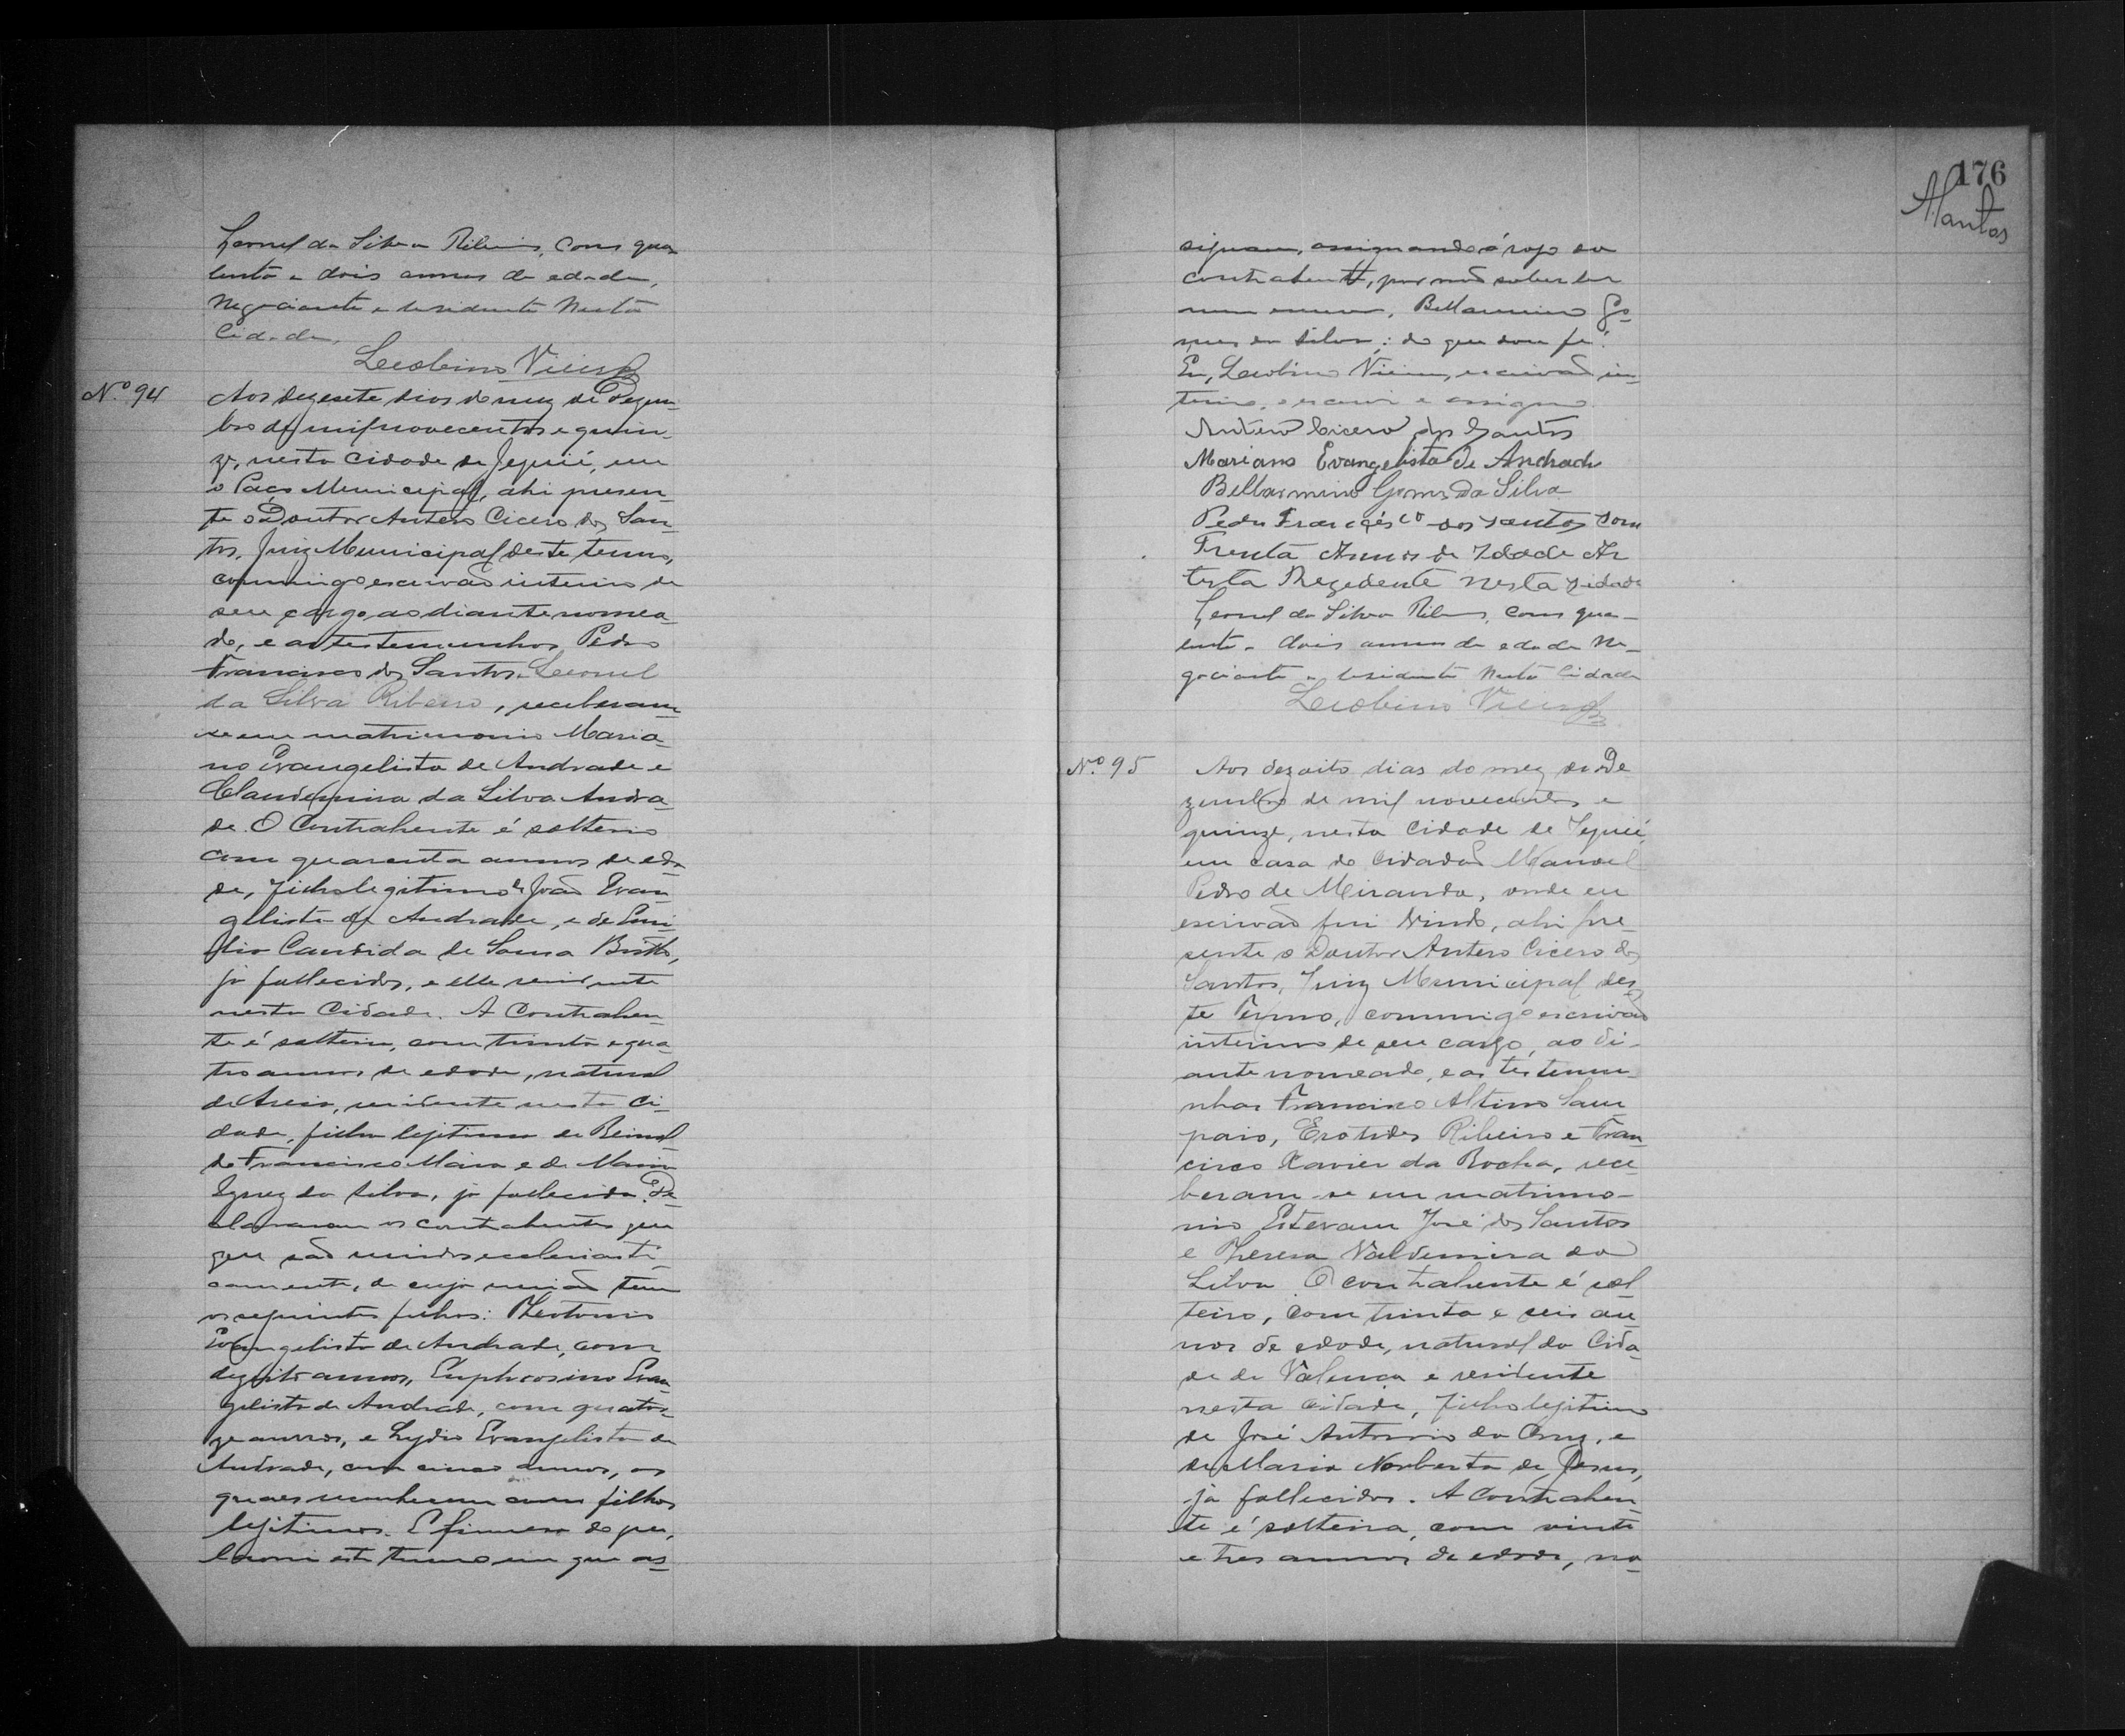 Leonel da Silva Ribeiro, com qua-
renta e dois annos de edade,
Negociante e residente Nesta
Cidade.
Leobino Vieira
Nº 94
Aos dezesete dias do mez de Dezem-
bro de mil novecentos e quin-
ze, nesta Cidade de Jequié, em
o Paço Municipal, ahi presen-
te o Doutor Antero Cicero dos San-
tos, Juiz Municipal deste termo,
commigo escrivão interino de
seu cargo ao diante nomea-
do, e as testemunhas Pedro
Francisco dos Santos e Leonel
da Silva Ribeiro, receberam-
se em matrimonio Maria-
no Evangelista de Andrade e
Claudemira da Silva Andra-
de. O Contrahente é solteiro
com quarenta annos de eda-
de, filho legitimo de João Evan-
gelista de Andrade, e de
Candida de Sousa Britto,
já fallecidos, e elle residente
nesta Cidade. A Contrahen-
te é solteira, com trinta e qua-
tro annos de edade, natural
de Areia, residente nesta Ci-
dade, filha legitima de
do Francisco e de Maria
Ignez da Silva, já fallecida. De-
clararam os contrahentes que
que são unidos ecclesiasti-
camente, de cuja união tem
os seguintes filhos: Theotonio
Evangelista de Andrade, com
dezoito annos, Euphrosino Evan-
gelista de Andrade, com quator-
ze annos, e Lydio Evangelista de
Andrade, com cinco annos, os
quaes reconhecem como filhos
legitimos. E firmeza do que,
lavrei este termo em que as-
176
ASantos
signam, assignando á rogo da
contrahente, por não saber ler
nem escrever, Bellarmino Go-
mes da Silva; do que dou fé.
Eu, Leobino Vieira, escrivão in-
terino, o escrevi e assigno.
Antero Cicero dos Santos
Mariano Evangelista de Andrade
Bellarmino Gomes da Silva
Pedro Francisco dos Santos com
Trenta Annos de Idade Ar
tista Rezedente Nesta Cidade
Leonel da Silva Ribeiro, com qua-
renta e dois annos de edade Ne-
gociante e residente Nesta Cidade
Leobino Vieira
Nº 95
Aos dezoito dias do mez de De
zembro de mil novecentos e
quinze, nesta Cidade de Jequié,
em casa do Cidadão Manoel
Pedro de Miranda, onde eu
escrivão fui vindo, ahi pre-
sente o Doutor Antero Cicero dos
Santos, Juiz Municipal des-
te Termo, commigo escrivão
interino de seu cargo, ao di-
ante nomeado, e as testemu-
nhas Francisco Altino Sam
paio, Erotides Ribeiro e Fran-
cisco Xavier da Rocha, rece-
beram-se em matrimo-
nio Estevam José dos Santos
e Thereza Valdemira da
Silva. O contrahente é sol-
teiro, com trinta e seis an-
nos de edade, natural da Cida-
de de Valença e residente
nesta cidade, filho legitimo
de José Antonio da Cruz, e
de Maria Norberta de Jesus,
já fallecidos. A Contrahen-
te é solteira, com vinte
e tres annos de edade, na-